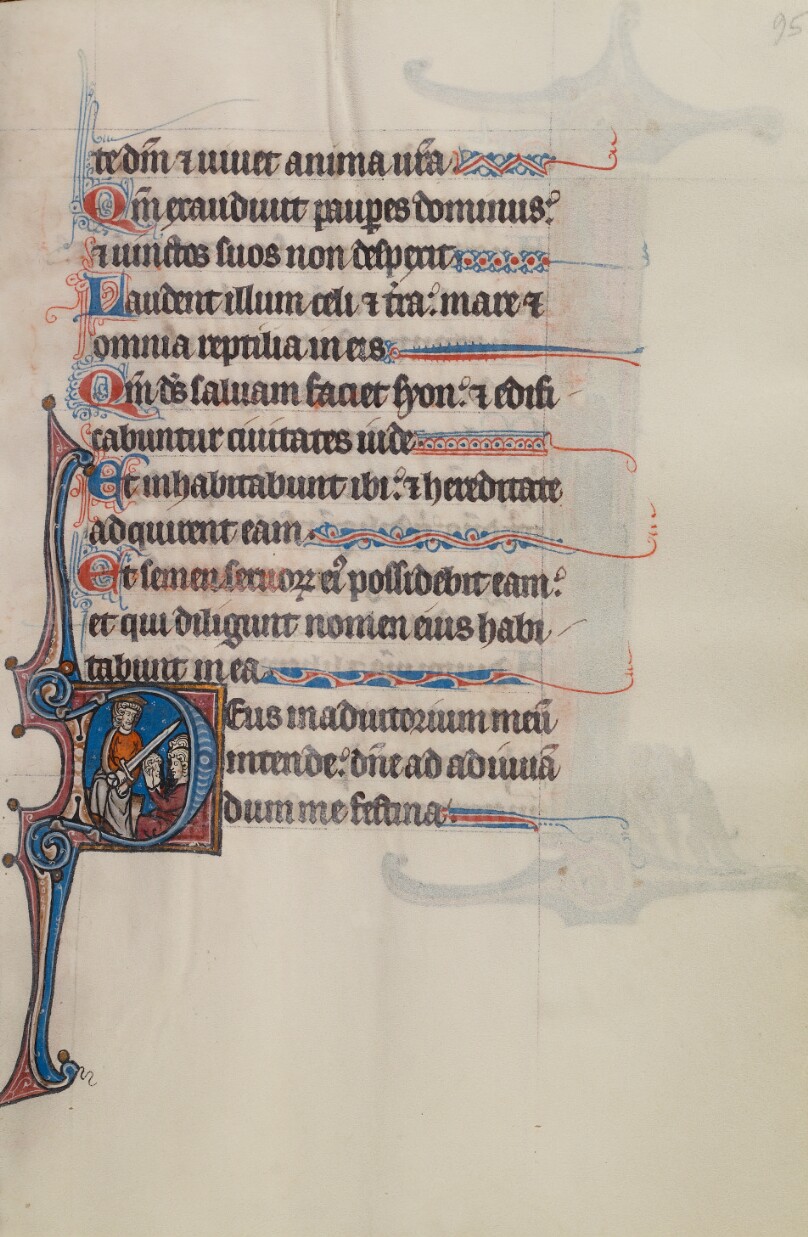 95
te dm̄ ⁊ uiuet anima ur̄a
Qm̄ exaudiuit paup̱es dominus:
⁊ uinctos suos non despexit
Laudent illum celi ⁊ tr̄a: mare ⁊
omnia reptilia in eis
Qm̄ ds̄ saluam faciet syon: ⁊ edifi
cabuntur ciuitates iude
Et inhabitabunt ibi: ⁊ hereditate
adquirent eam
Et semen seruoꝝ eiꝰ possidebit eam:
et qui diligunt nomen eius habi
tabunt in ea
Deus in adiutorium meū
intende: dn̄e ad adiuuā
dum me festina